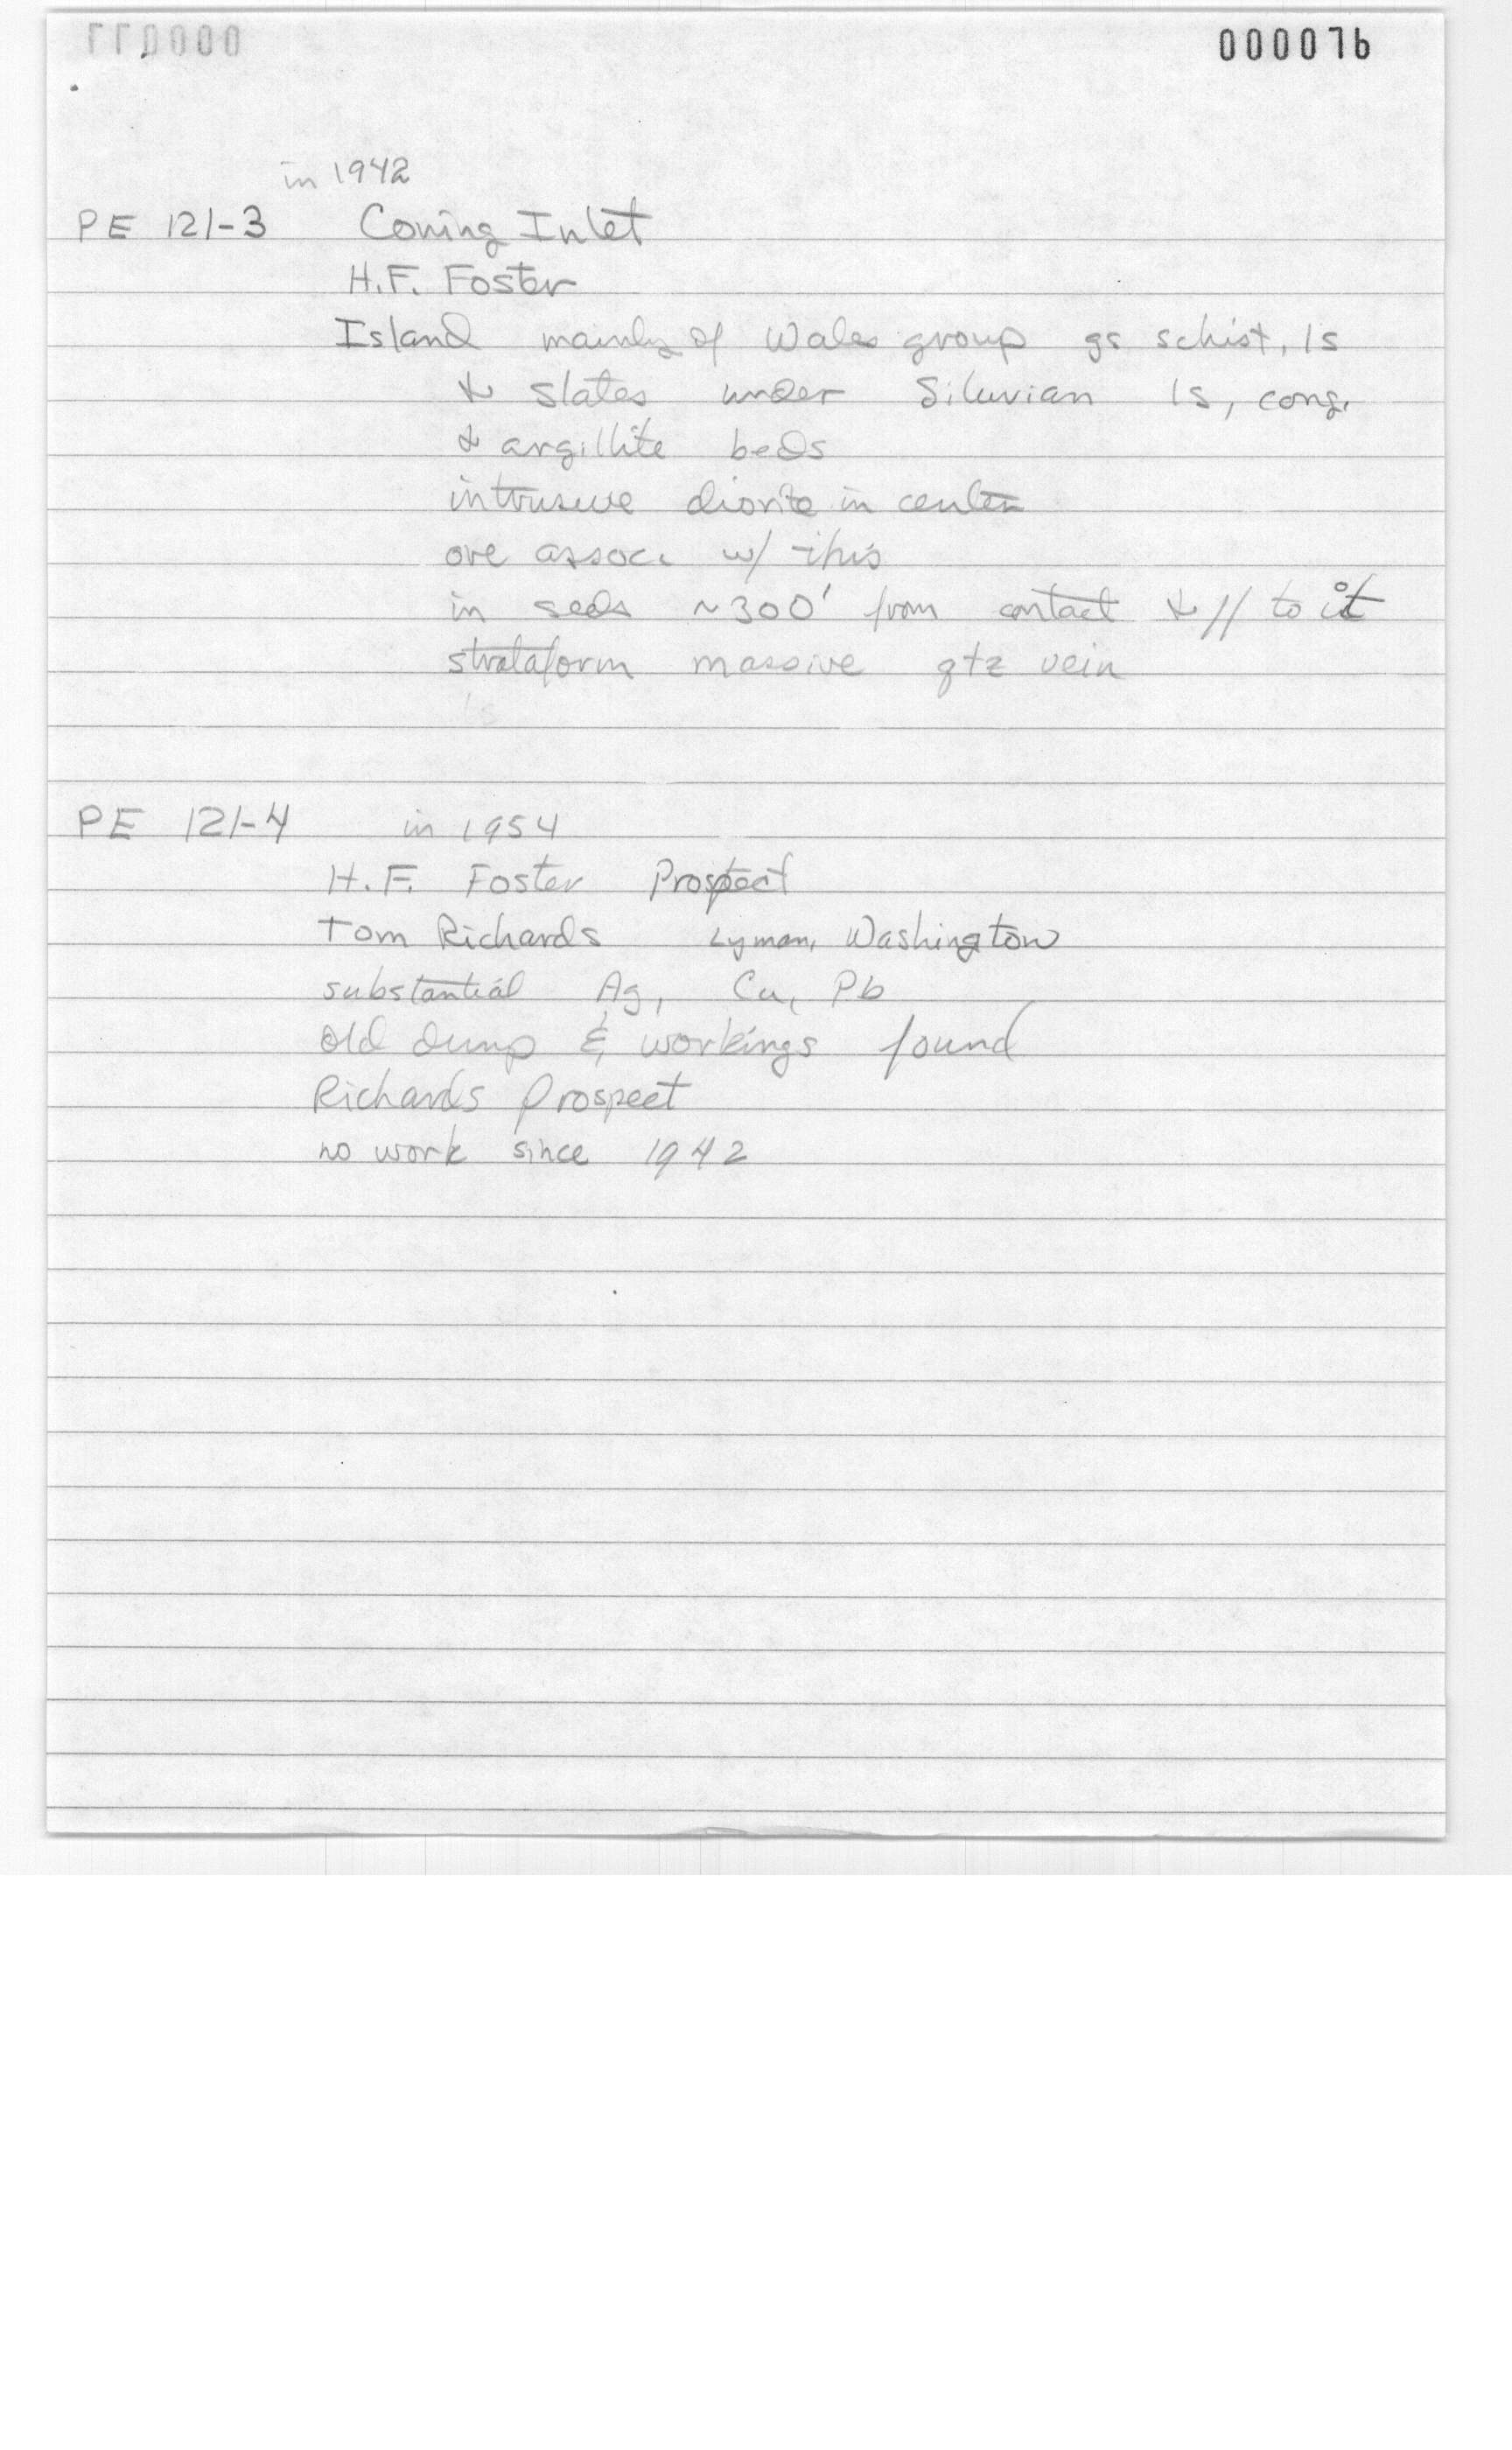 000076
in 1942
PE 121-3 Coning Inlet
H.F. Foster
Island mainly of Wales group gs schist, ls
& slates under Siluvian ls, cong.
& argillite beds
intrusive diorite in center
ore assoc. w/ this
in seds ~300' from contact & // to it
strataform massive qtz vein
ls
PE 121-4 in 1954
H.F. Foster Prospect
Tom Richards Lyman, Washington
substantial Ag, Cu, Pb
old dump & workings found
Richards Prospect
no work since 1942